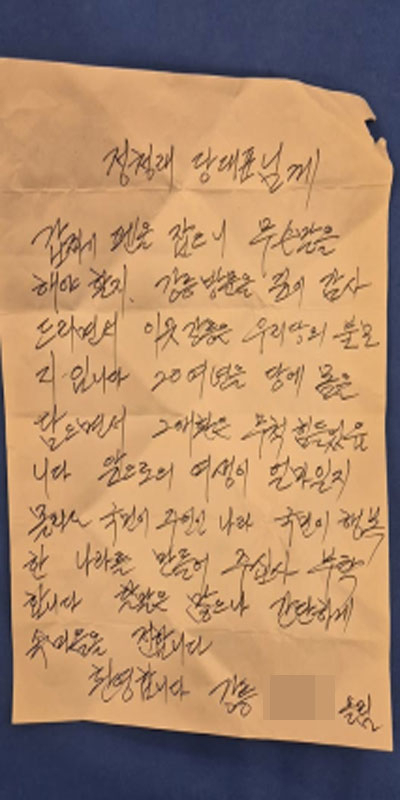 정청래 당대표님께
갑짜기 펜을 잡으니 무슨말을
해야 할지. 강릉방문을 깊이 감사
드리면서 이곳 강릉은 우리당의 불모
지 입니다 20여년을 당에 몸을
담으면서 그때환은 무척 힘들었읍
니다 앞으로의 여생이 얼마일지
몰라도 국민이 주인인 나라 국민이 행복
한 나라를 만들어 주십사 부탁
합니다 할말은 많으나 간단하게
속마음을 전합니다
환영합니다 강릉 올림